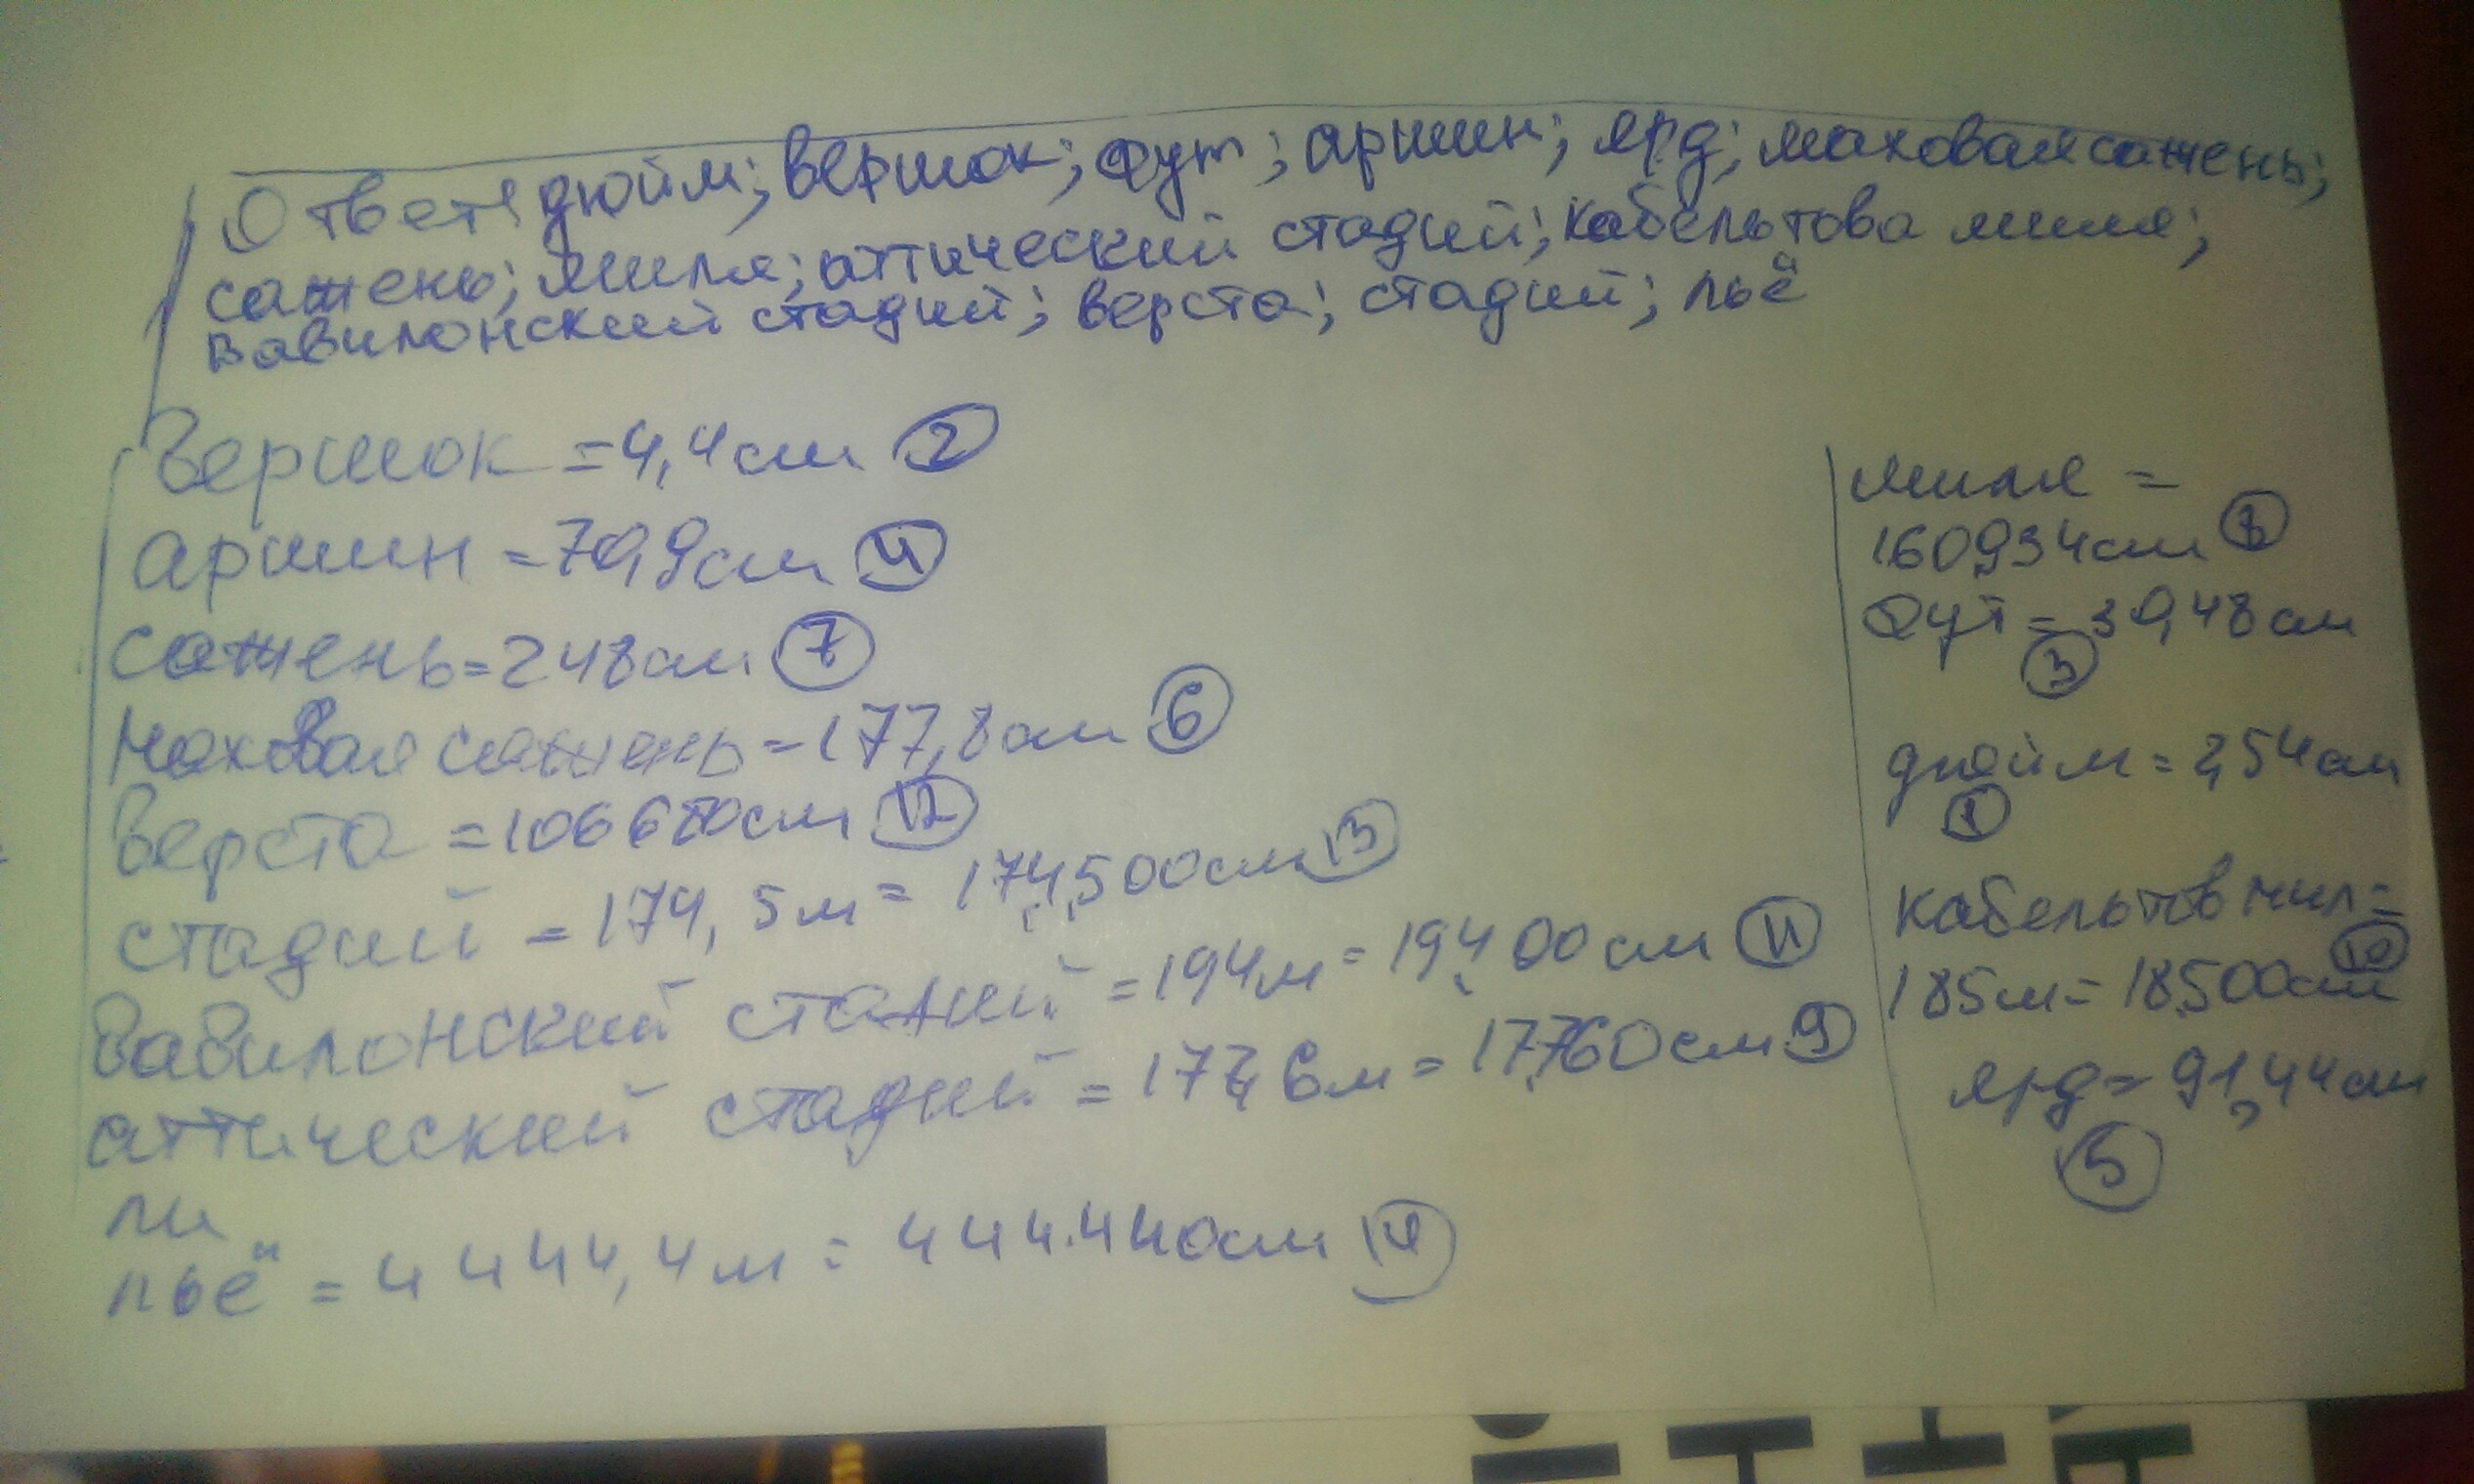 Ответ: дюйм; вершок; фут; аршин; ярд; маховая сажень;
сажень; миля; аттический стадий; кабельтова миля;
вавилонский стадий; верста; стадий; льё
Вершок = 4,4 см 2
аршин = 70,9 см 4
сажень = 248 см 7
Маховая сажень = 177,8 см 6
Верста = 106680 см 12
стадий = 174,5 м = 174,500 см 13
Вавилонский стадий = 194 м = 19,400 см 11
аттический стадий = 177,6 м = 17.760 см 9
ли
льё = 4444,4 м = 444.440 см 14
миля =
160,934 см 8
Фут = 30,48 см
3
дюйм = 2,54 см
1
кабельтов мил =
10
185 м = 18,500 см
ярд = 91,44 см
5